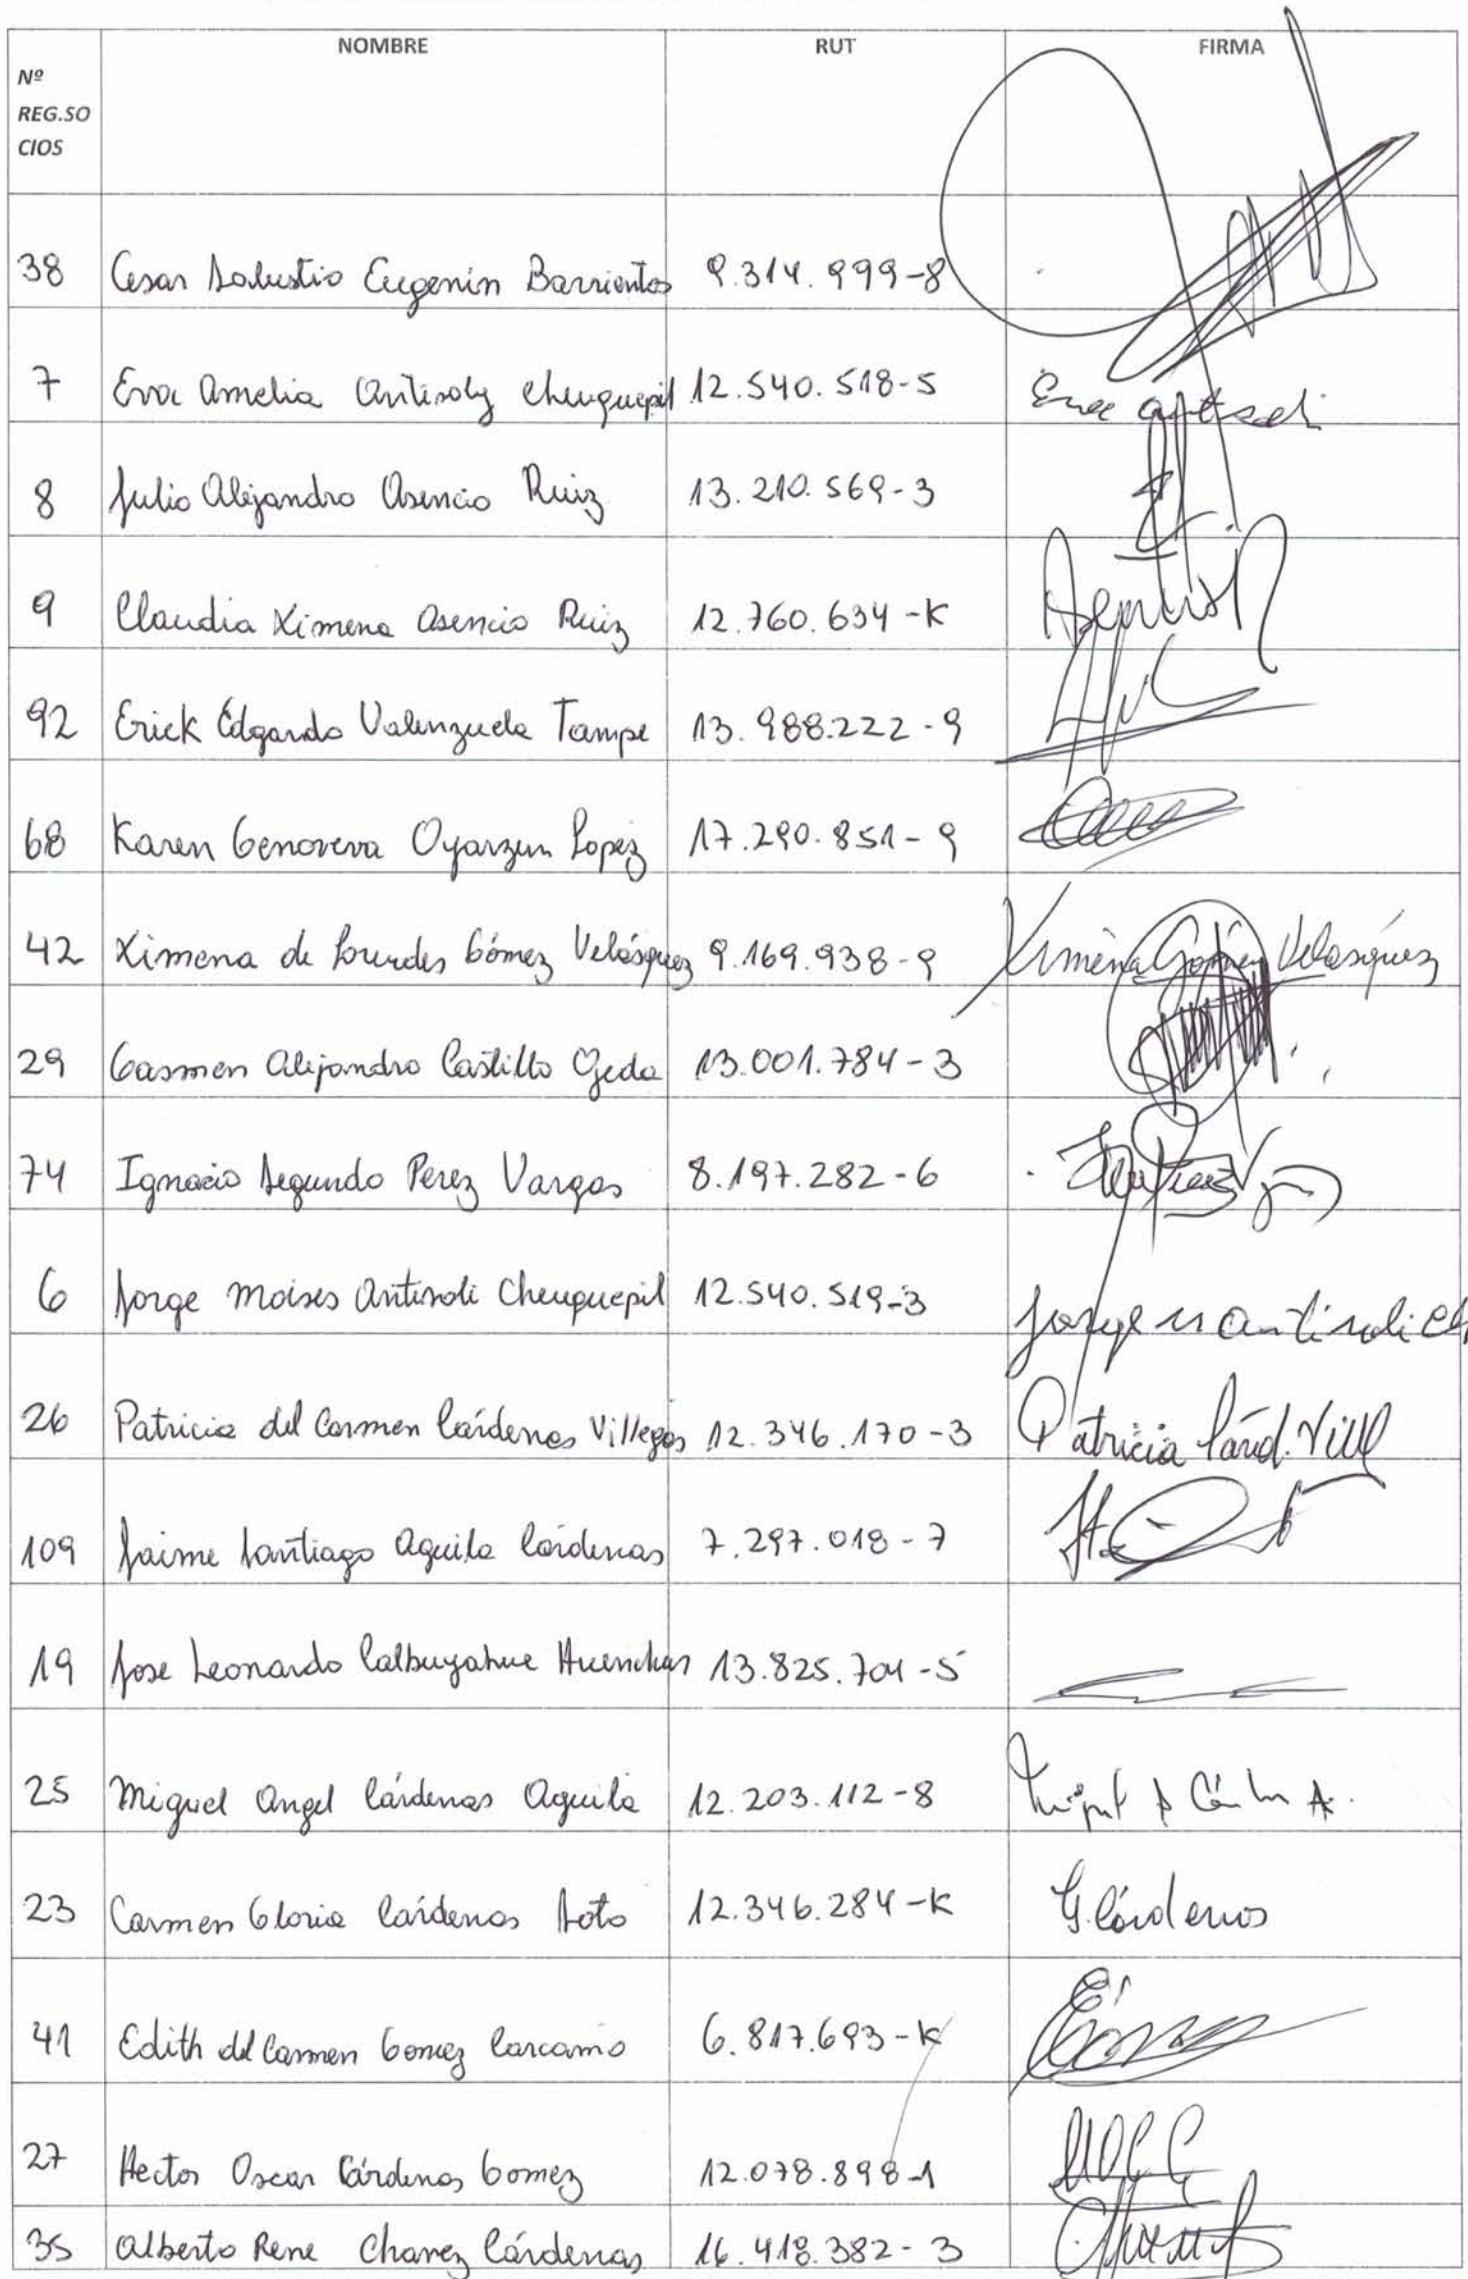 NOMBRE RUT FIRMA
Nº
REG.SO
CIOS
38 Cesar Salustio Eugenin Barrientos 9.314.999-8
7 Eva Amelia Antisoly Cheuquepil 12.540.518-5
8 Julio Alejandro Asencio Ruiz 13.210.569-3
9 Claudia Ximena Asencio Ruiz 12.760.634-K
92 Erick Edgardo Valenzuela Tampe 13.988.222-9
68 Karen Genoveva Oyarzun Lopez 17.290.851-9
42 Ximena de Lourdes Gómez Velásquez 9.169.938-9 Ximena Gómez Velasquez
29 Gasmen Alejandro Castillo Ojeda 13.001.784-3
74 Ignacio Segundo Perez Vargas 8.197.282-6
6 Jorge Moises Antisoli Cheuquepil 12.540.519-3 Jorge M Antisoli Ch
26 Patricia del Carmen Cárdenas Villegas 12.346.170-3 Patricia Cárd. Vill
109 Jaime Santiago Aguila Cárdenas 7.297.018-7
19 Jose Leonardo Calbuyahue 13.825.701-5
25 Miguel Angel Cárdenas Aguila 12.203.112-8
23 Carmen Gloria Cárdenas Soto 12.346.284-K G. Cárdenas
41 Edith del Carmen Gomez Carcamo 6.817.693-K
27 Hector Oscar Cárdenas Gomez 12.078.898-1
35 Alberto Rene Chavez Cárdenas 16.418.382-3